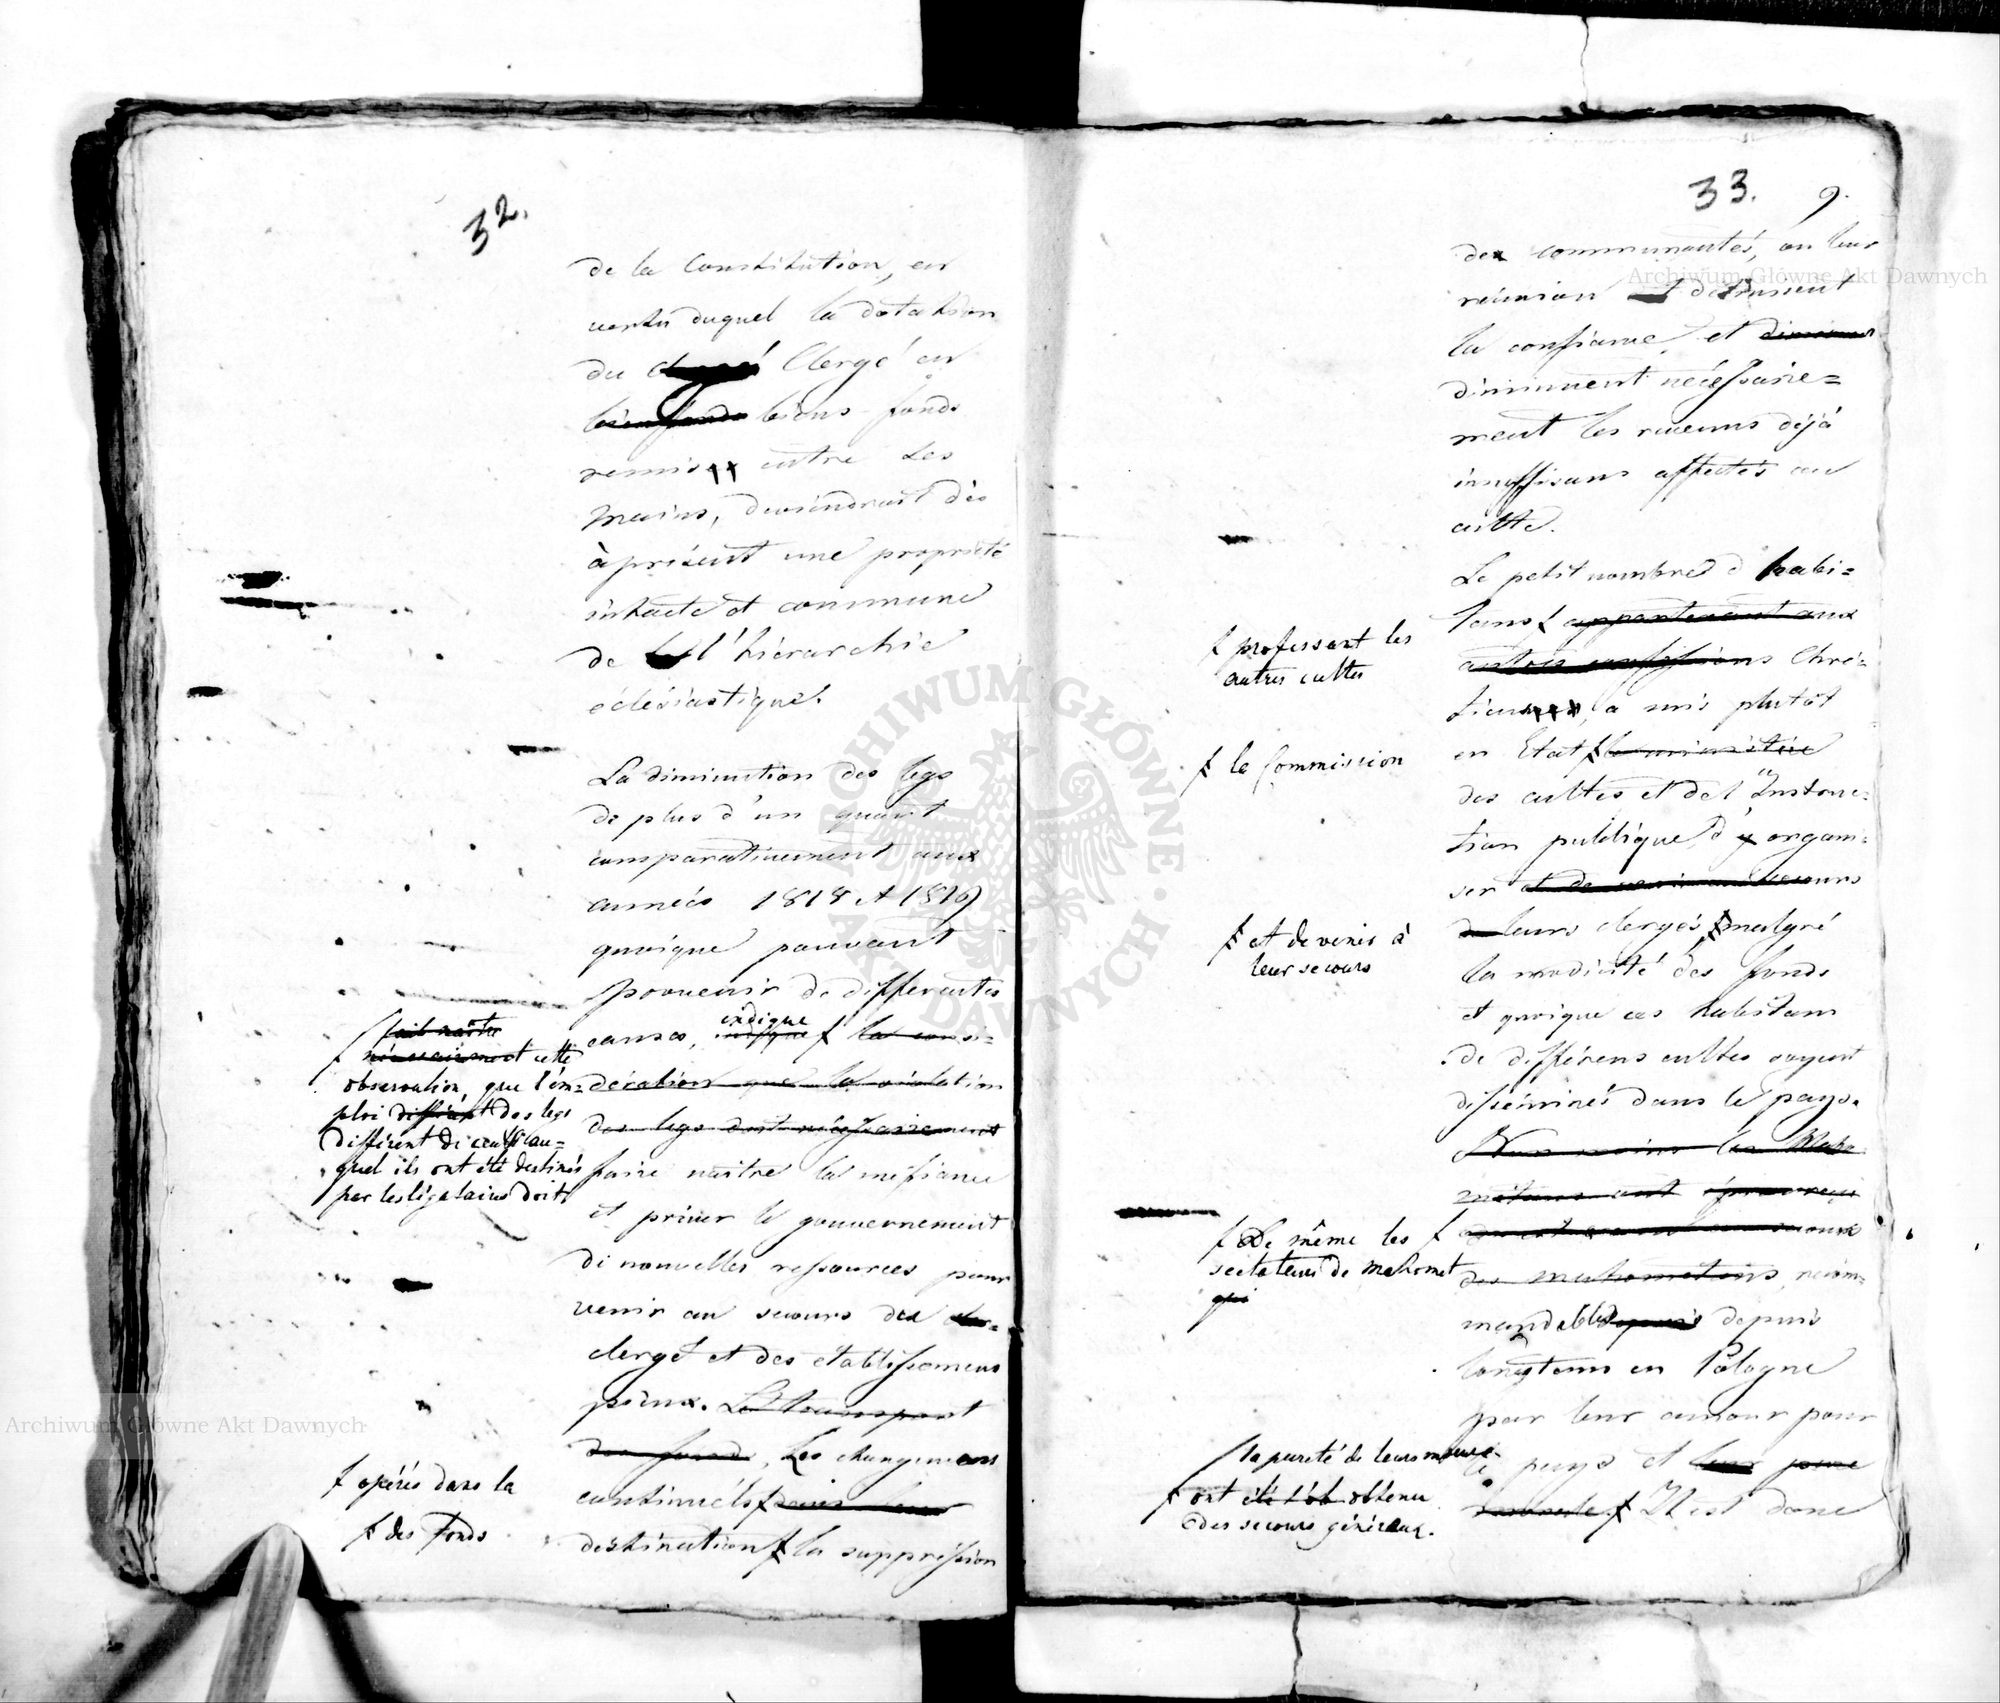 32.
de la Constitution, en
vertu duquel la dotation
du Clergé en
bienfonds biens-fonds
remis entre les
mains, deviendrait dès
à présent une propriété
intacte et commune
de l'hiérarchie
eclésiastique.
La diminution des legs
de plus d'un quart
comparativement aux
années 1818 et 1819
quoique pouvant
provenir de differentes
causes, indique la consi=
dération que la violation
des legs doit nécessairement
faire naitre la mefiance
et priver le gouvernement
de nouvelles ressources pour
venir au secours des
clergé et des établissemens
pieux. Le transport
des fonds, Les changemens
continuels dans leur
destination la suppression
fait naitre
nécessairement cette
observation, que l'em=
ploi différent des legs
différent de celui au=
quel ils ont été destinés
par les légataires doit
opérés dans la
des Fonds
33. 9.
des communautés, ou leur
réunion et detruisent
la confiance, et
diminuent nécessaire=
ment les revenus déjà
insuffisans affectés au
culte.
Le petit nombre d'habi=
tans appartenant aux
autres confessions Chré=
tiens, a mis plutôt
en Etat le ministère
des cultes et de l'Instruc=
tion publique, d'y organi=
ser et de venir au secours
de leurs clergés malgré
la modicité des fonds
et quoique ces habitans
de différens cultes soyent
disséminés dans le pays.
Non moins les Maho
métans ont
des mahometans, recom=
mandables depuis
longtems en Pologne
par leur amour pour
le pays et leur
Il est donc
professant les
autres cultes
la Commission
et de venir à
leur secours
De même les
sectateurs de Mahomet
qui
la pureté de leurs mœurs
ont été l'ob obtenu
des secours généraux.
Archiwum Główne Akt Dawnych
Archiwum Główne Akt Dawnych
ARCHIWUM GŁÓWNE AKT DAWNYCH